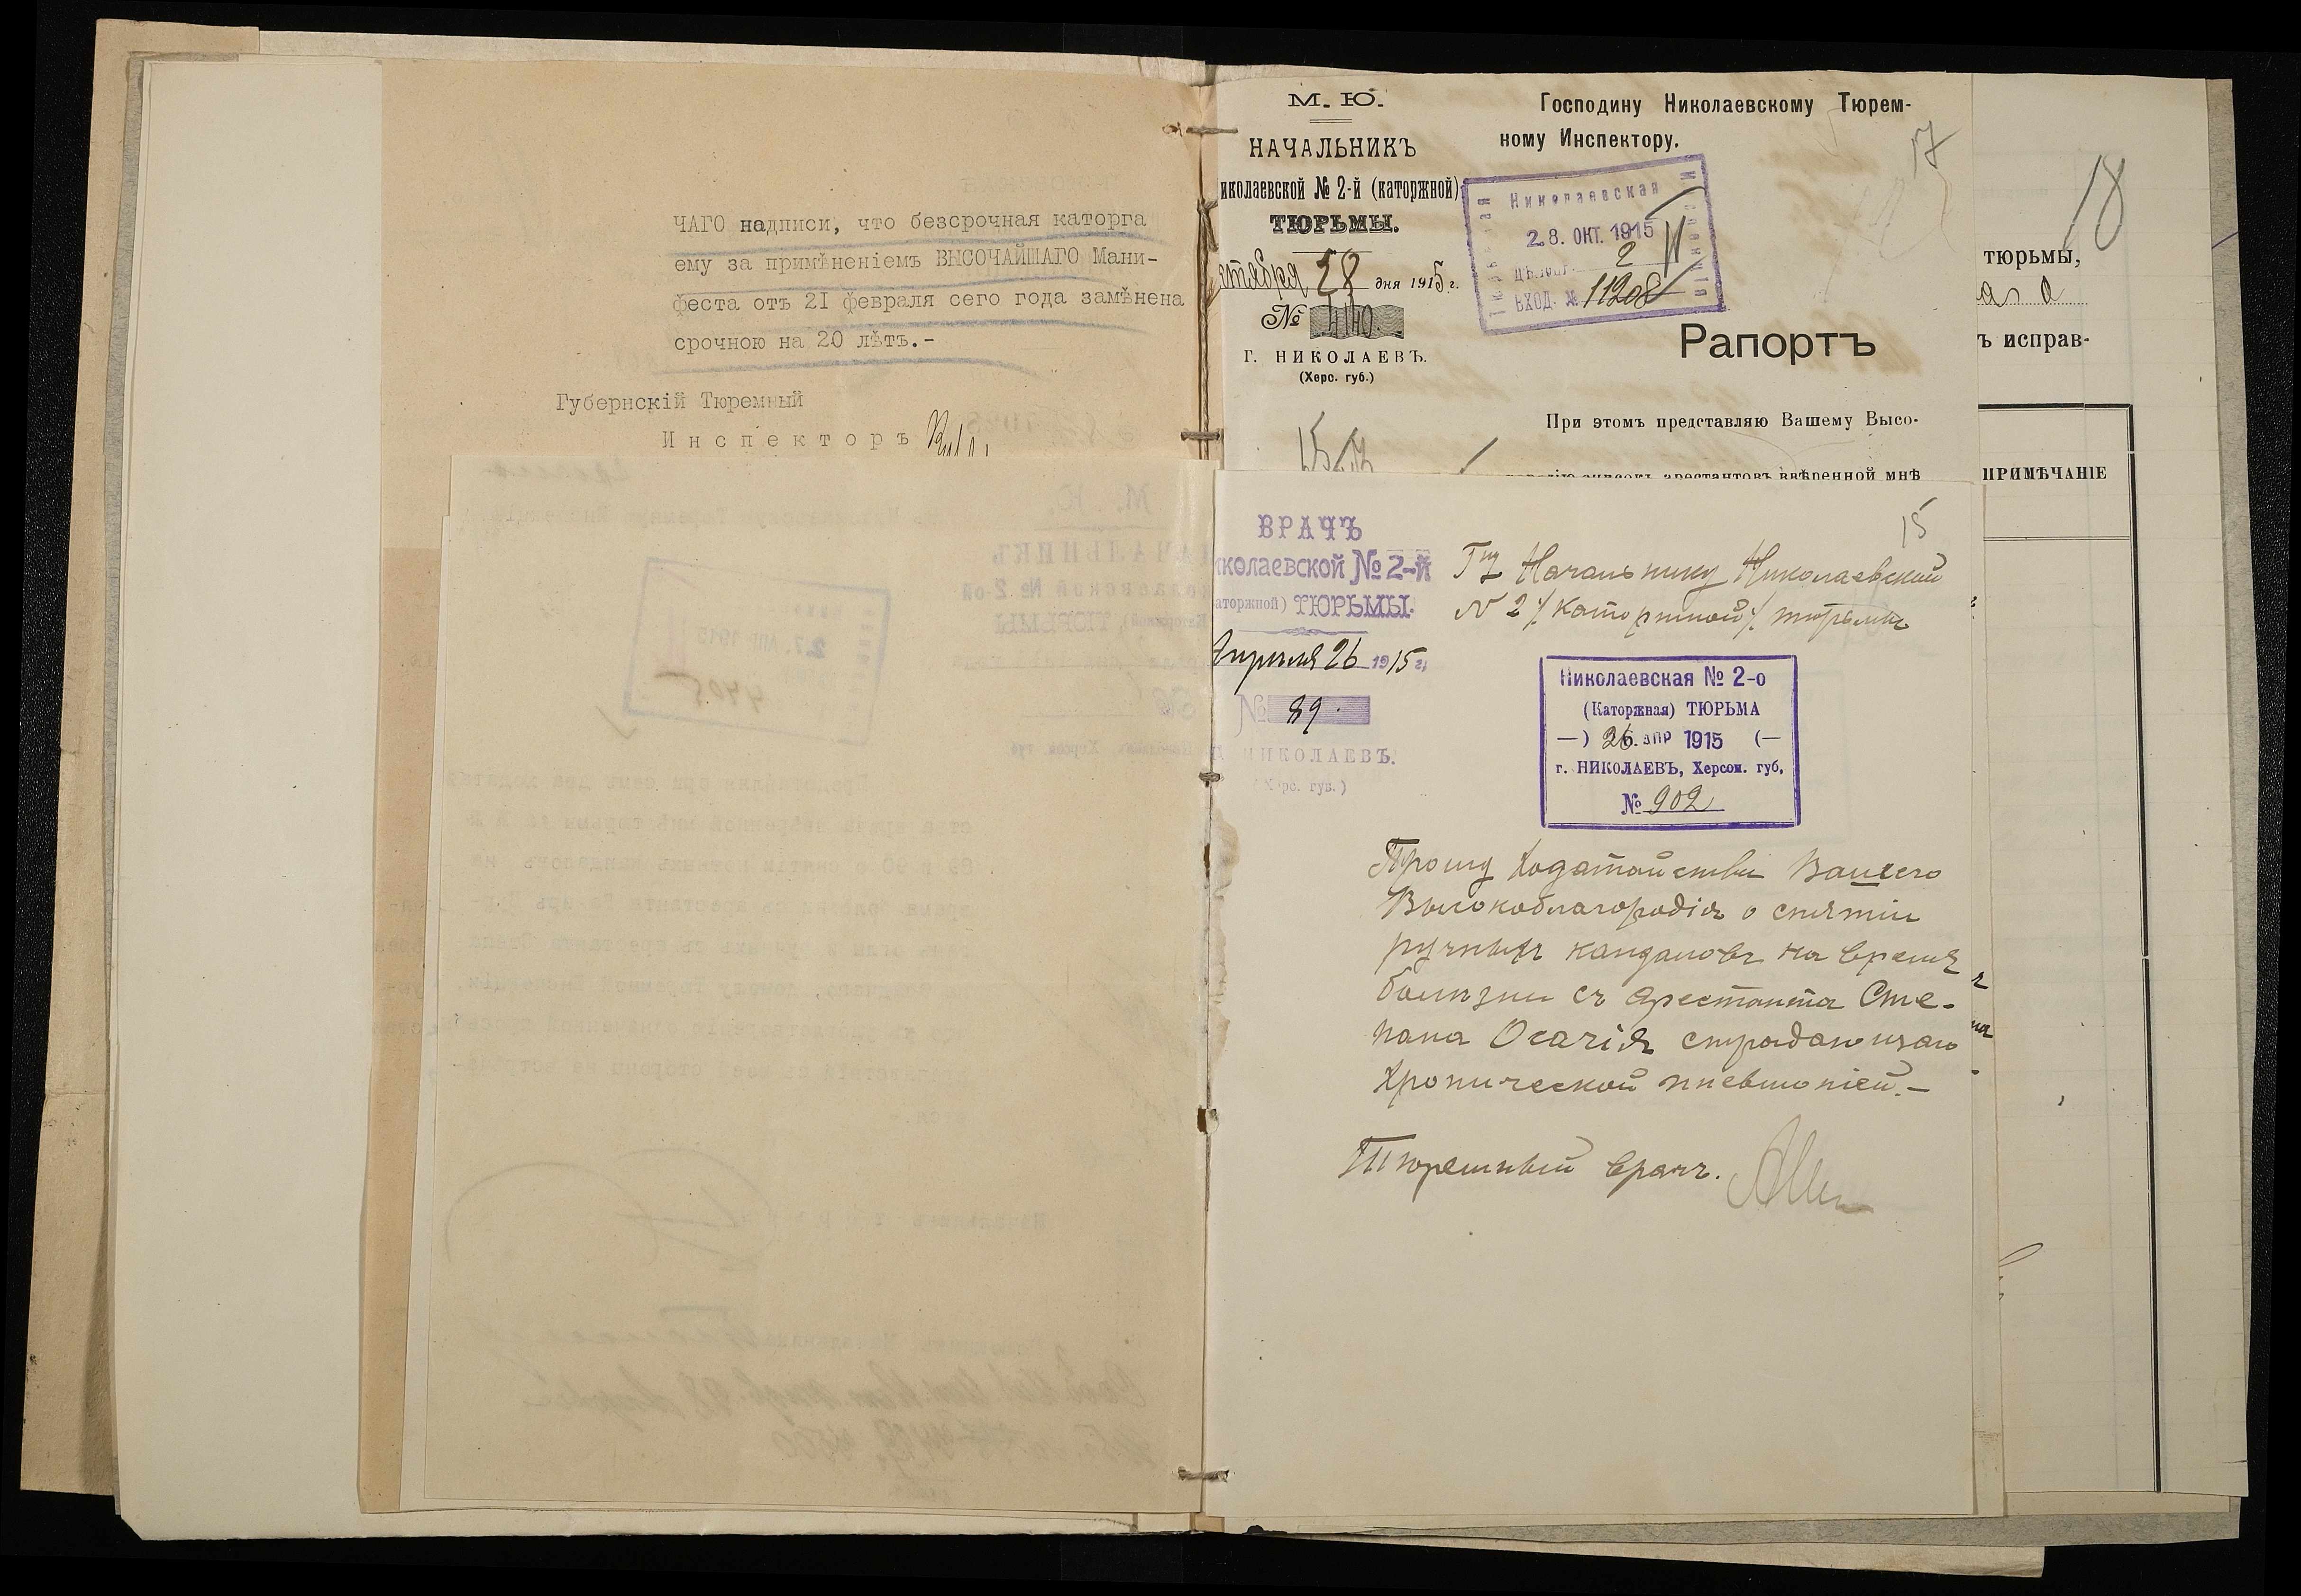 ЧАГО надписи, что безсрочная каторга
ему за примѣненіемъ ВЫСОЧАЙШАГО Мани-
феста отъ 21 февраля сего года замѣнена
срочною на 20 лѣтъ.-
Губернскій Тюремный
Инспекторъ
М. Ю.
НАЧАЛЬНИКЪ
иколаевской № 2-й (каторжной)
ТЮРЬМЫ.
ктября 28 дня 1915 г.
№ 440.
Г. НИКОЛАЕВЪ.
(Херс. губ.)
Господину Николаевскому Тюрем-
ному Инспектору.
17
Николаевская
28. ОКТ. 1915
2
ВХОД. № 11208
Рапортъ
При этомъ представляю Вашему Высо-
списокъ арестантовъ ввѣренной мнѣ
18
тюрьмы,
ъ исправ-
ПРИМѢЧАНІЕ
15
ВРАЧЪ
иколаевской № 2-й
аторжной) ТЮРЬМЫ.
Апрѣля 26 1915 г.
№ 89.
НИКОЛАЕВЪ.
Гну Начальнику Николаевской
N 2 /каторжной/ тюрьмы
Николаевская № 2-о
(Каторжная) ТЮРЬМА
—) 26. АПР 1915 (—
г. НИКОЛАЕВЪ, Херсон. губ.
№ 902
Прошу ходатайства Вашего
Высокоблагородія о снятіи
ручныхъ кандаловъ на время
болѣзни съ арестанта Сте-
пана Осачія страдающаго
хронической пневмоніей.—
Тюремный врачъ.